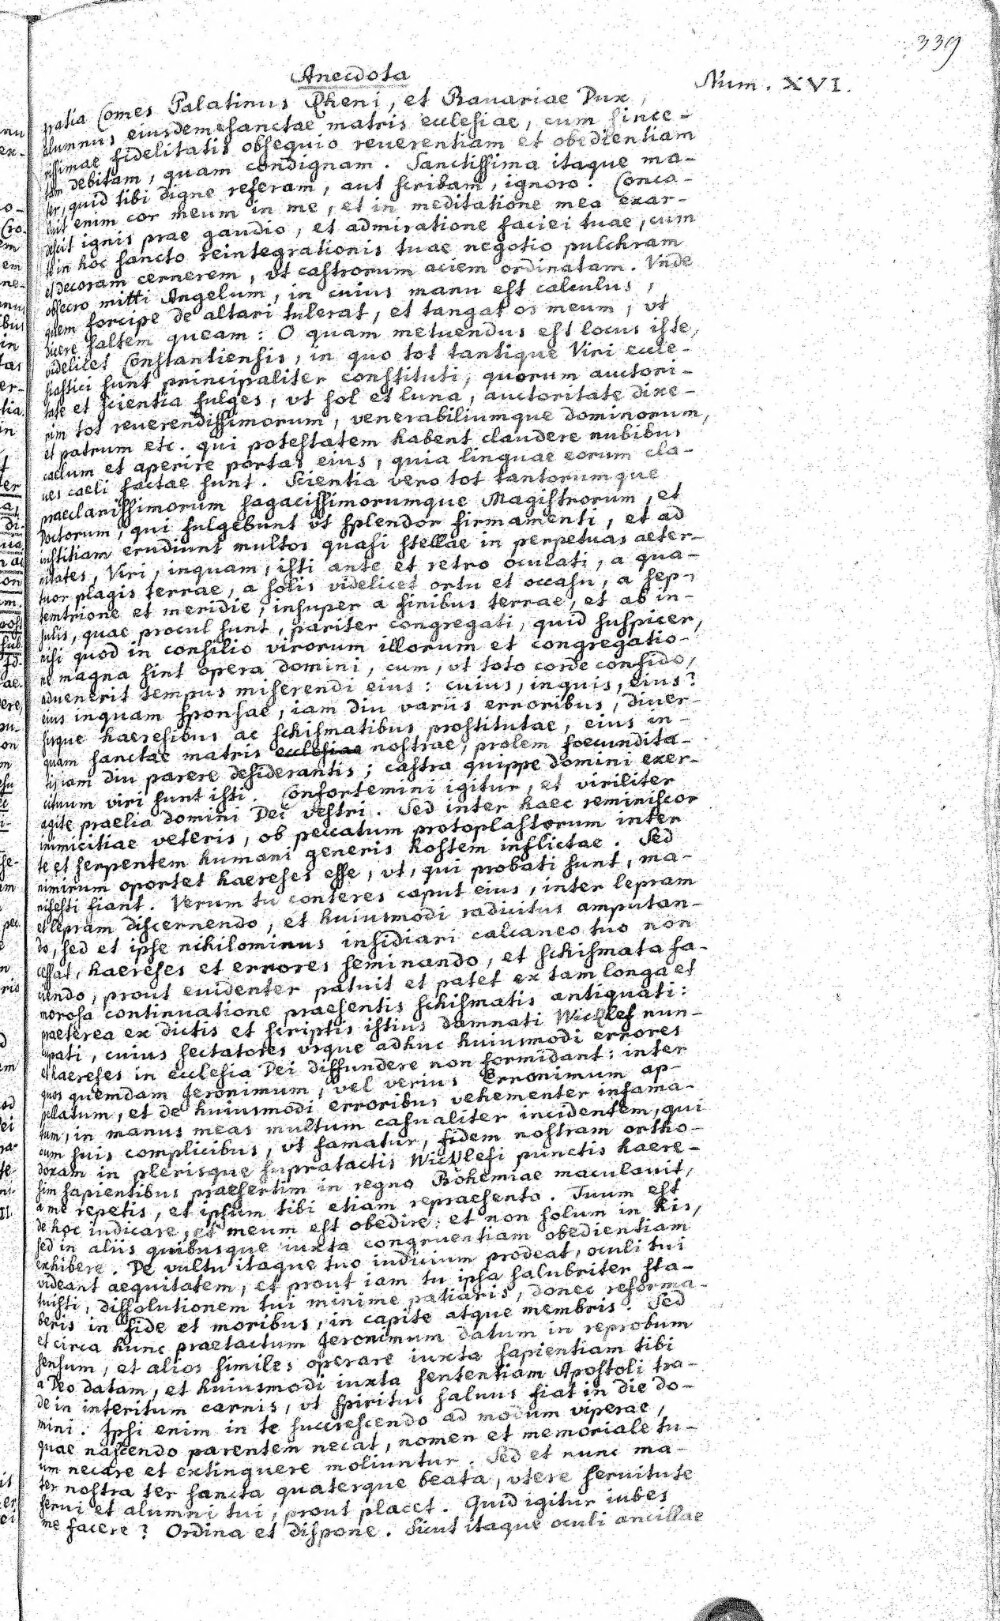 339
Anecdota Num. XVI.
gratia Comes Palatinus Rheni, et Bavariae Dux,
alumnus eiusdem sanctae matris ecclesiae, cum since-
rissimae fidelitatis obsequio reverentiam et obedientiam
tam debitam, quam condignam. Sanctissima itaque ma-
ter, quid tibi digne referam, aut scribam, ignoro. Conca-
luit enim cor meum in me, et in meditatione mea exar-
descit ignis prae gaudio, et admiratione faciei tuae, cum
te in hoc sancto reintegrationis tuae negotio pulchram
et decoram cernerem, vt castrorum aciem ordinatam. Vnde
obsecro mitti Angelum, in cuius manu est calculus,
quem forcipe de altari tulerat, et tangat os meum, vt
dicere saltem queam: O quam metuendus est locus iste,
videlicet Constantiensis, in quo tot tantique Viri eccle-
siastici sunt principaliter constituti, quorum auctori-
tate et scientia fulges, vt sol et luna, auctoritate dixe-
rim tot reuerendissimorum, venerabiliumque dominorum,
et patrum etc. qui potestatem habent claudere nubibus
caelum et aperire portas eius, quia linguae eorum cla-
ues caeli factae sunt. Scientia vero tot tantorumque
praeclarissimorum sagacissimorumque Magistrorum, et
Doctorum, qui fulgebunt vt splendor firmamenti, et ad
iustitiam erudiunt multos quasi stellae in perpetuas aeter-
nitates, Viri, inquam, isti ante et retro oculati, a qua-
tuor plagis terrae, a solis videlicet ortu et occasu, a sep-
temtrione et meridie, insuper a finibus terrae, et ab in-
sulis, quae procul sunt, pariter congregati, quid suspicer,
nisi quod in consilio virorum illorum et congregatio-
ne magna sint opera domini, cum, vt toto corde confido,
advenerit tempus miserendi eius: cuius, inquis, eius?
eius inquam sponsae, iam diu variis erroribus, diuer-
sisque haeresibus ac schismatibus prostitutae, eius in-
quam sanctae matris ecclesiae nostrae, prolem foecundita-
tis iam diu parere desiderantis; castra quippe domini exer-
cituum viri sunt isti. Confortemini igitur, et viriliter
agite praelia domini Dei vestri. Sed inter haec reminiscor
inimicitiae veteris, ob peccatum protoplastorum inter
te et serpentem humani generis hostem inflictae. Sed
nimirum oportet haereses esse, vt, qui probati sunt, ma-
nifesti fiant. Verum tu conteres caput eius, inter lepram
et lepram discernendo, et huiusmodi radicitus amputan-
do, sed et ipse nihilominus insidiari calcaneo tuo non
cessat, haereses et errores seminando, et schismata fa-
ciendo, prout euidenter patuit et patet ex tam longa et
morosa continuatione praesentis schismatis antiquati:
praeterea ex dictis et scriptis istius damnati Wicklef nun-
cupati, cuius sectatores vsque adhuc huiusmodi errores
et haereses in ecclesia Dei diffundere non formidant: inter
quos quemdam Jeronimum, vel verius Erronimum ap-
pellatum, et de huiusmodi erroribus vehementer infama-
tum, in manus meas multum casualiter incidentem, qui
cum suis complicibus, vt famatur, fidem nostram ortho-
doxam in plerisque supratactis Wicklefi punctis haere-
sim sapientibus praesertim in regno Bohemiae maculauit,
a me repetis, et ipsum tibi etiam repraesento. Tuum est
de hoc iudicare, et meum est obedire: et non solum in his,
sed in aliis quibusque iuxta congruentiam obedientiam
exhibere. De vultu itaque tuo iudicium prodeat, oculi tui
videant aequitatem, et prout iam tu ipsa salubriter sta-
tuisti, dissolutionem tui minime patiaris, donec reforma-
beris in fide et moribus, in capite atque membris. Sed
et circa hunc praetactum Jeronimum datum in reprobum
sensum, et alios similes operare iuxta sapientiam tibi
a Deo datam, et huiusmodi iuxta sententiam Apostoli tra-
de in interitum carnis, vt spiritus saluus fiat in die do-
mini. Ipsi enim in te succrescendo ad modum viperae,
quae nascendo parentem necat, nomen et memoriale tu-
um necare et extinguere moliuntur. Sed et nunc ma-
ter nostra ter sancta quaterque beata, vtere seruitute
serui et alumni tui, prout placet. Quid igitur iubes
me facere? Ordina et dispone. Sicut itaque oculi ancillae